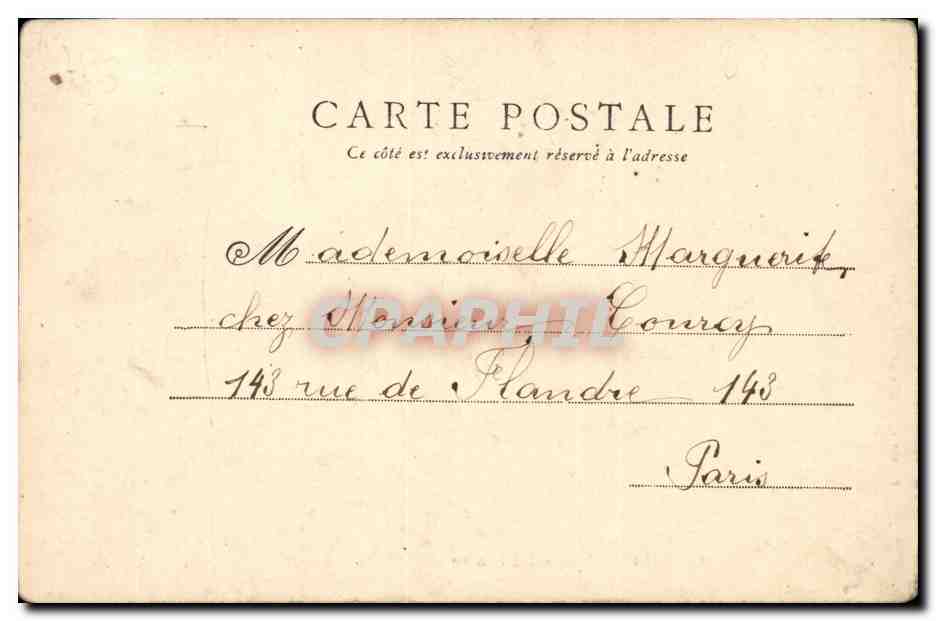 CARTE POSTALE
Ce côté est exclusivement réservé à l'adresse
Mademoiselle Marguerite,
chez Monsieur Courcy
CPAPHIL
143 rue de Flandre 143
Paris